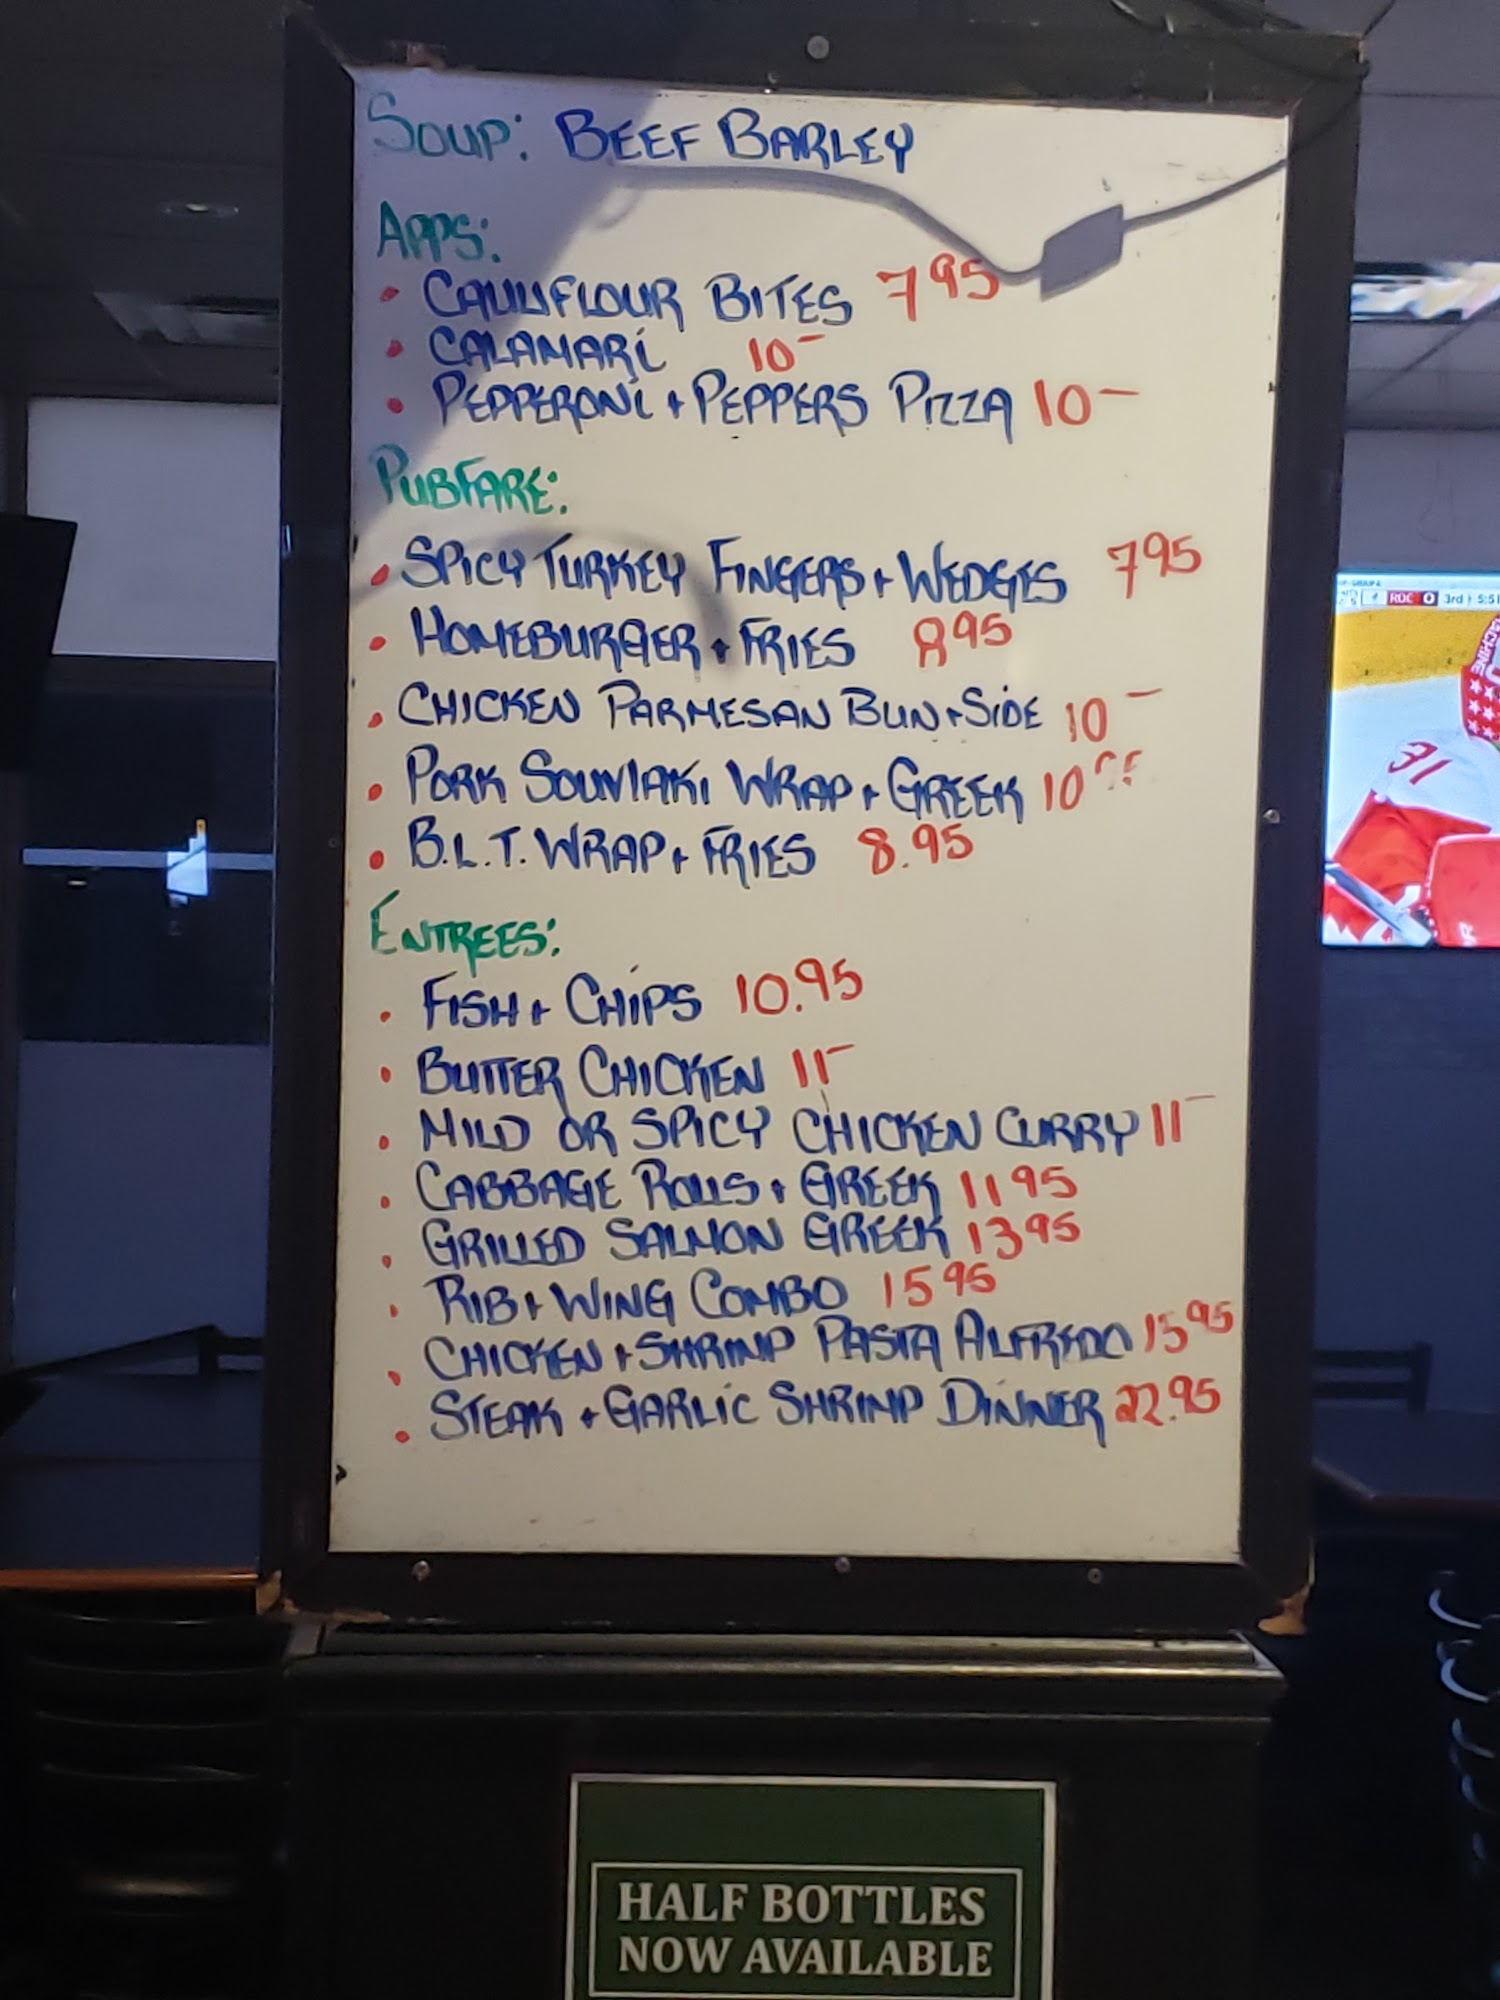 SOUP: BEEF BARLEY
APPS:
• CAULIFLOUR BITES 7 95
• CALAMARI 10 –
• PEPPERONI + PEPPERS PIZZA 10 –
PUBFARE:
• SPICY TURKEY FINGERS + WEDGES 7 95
• HOMEBURGER + FRIES 8 95
• CHICKEN PARMESAN BUN + SIDE 10 –
• PORK SOUVLAKI WRAP + GREEK 10
• B.L.T. WRAP + FRIES 8.95
ENTREES:
• FISH + CHIPS 10.95
• BUTTER CHICKEN 11 –
• MILD OR SPICY CHICKEN CURRY 11 –
• CABBAGE ROLLS + GREEK 11 95
• GRILLED SALMON GREEK 13 95
• RIB + WING COMBO 15 95
• CHICKEN + SHRIMP PASTA ALFREDO 15 95
• STEAK + GARLIC SHRIMP DINNER 22.95
ROC 0 3rd 5:51
31
HALF BOTTLES
NOW AVAILABLE